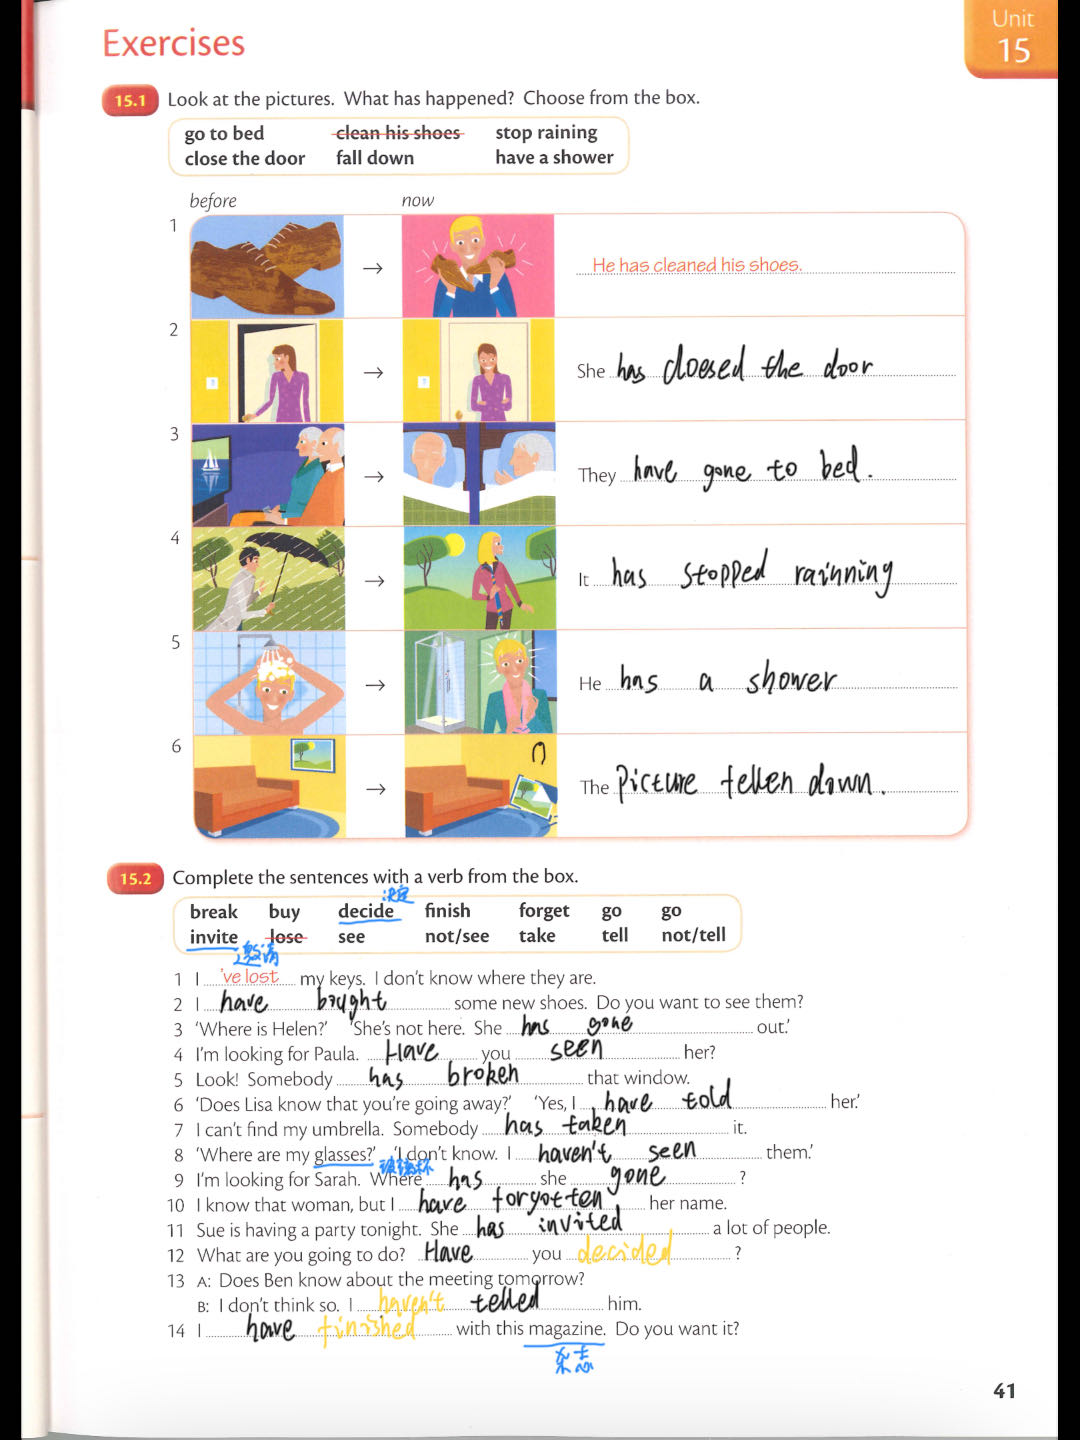 Exercises
Unit
15
15.1 Look at the pictures. What has happened? Choose from the box.
go to bed clean his shoes stop raining
close the door fall down have a shower
before now
1 He has cleaned his shoes.
2 She has cloesed the door
3 They have gone to bed.
4 It has stopped rainning
5 He has a shower
6 The Picture fellen down.
15.2 Complete the sentences with a verb from the box.
决定
break buy decide finish forget go go
invite lose see not/see take tell not/tell
邀请
1 I 've lost my keys. I don't know where they are.
2 I have bought some new shoes. Do you want to see them?
3 'Where is Helen?' 'She's not here. She has gone out.'
4 I'm looking for Paula. Have you seen her?
5 Look! Somebody has broken that window.
6 'Does Lisa know that you're going away?' 'Yes, I have told her.'
7 I can't find my umbrella. Somebody has taken it.
8 'Where are my glasses?' 'I don't know. I haven't seen them.'
玻璃杯
9 I'm looking for Sarah. Where has she gone ?
10 I know that woman, but I have forgotten her name.
11 Sue is having a party tonight. She has invited a lot of people.
12 What are you going to do? Have you decided ?
13 A: Does Ben know about the meeting tomorrow?
B: I don't think so. I haven't telled him.
14 I have finished with this magazine. Do you want it?
杂志
41